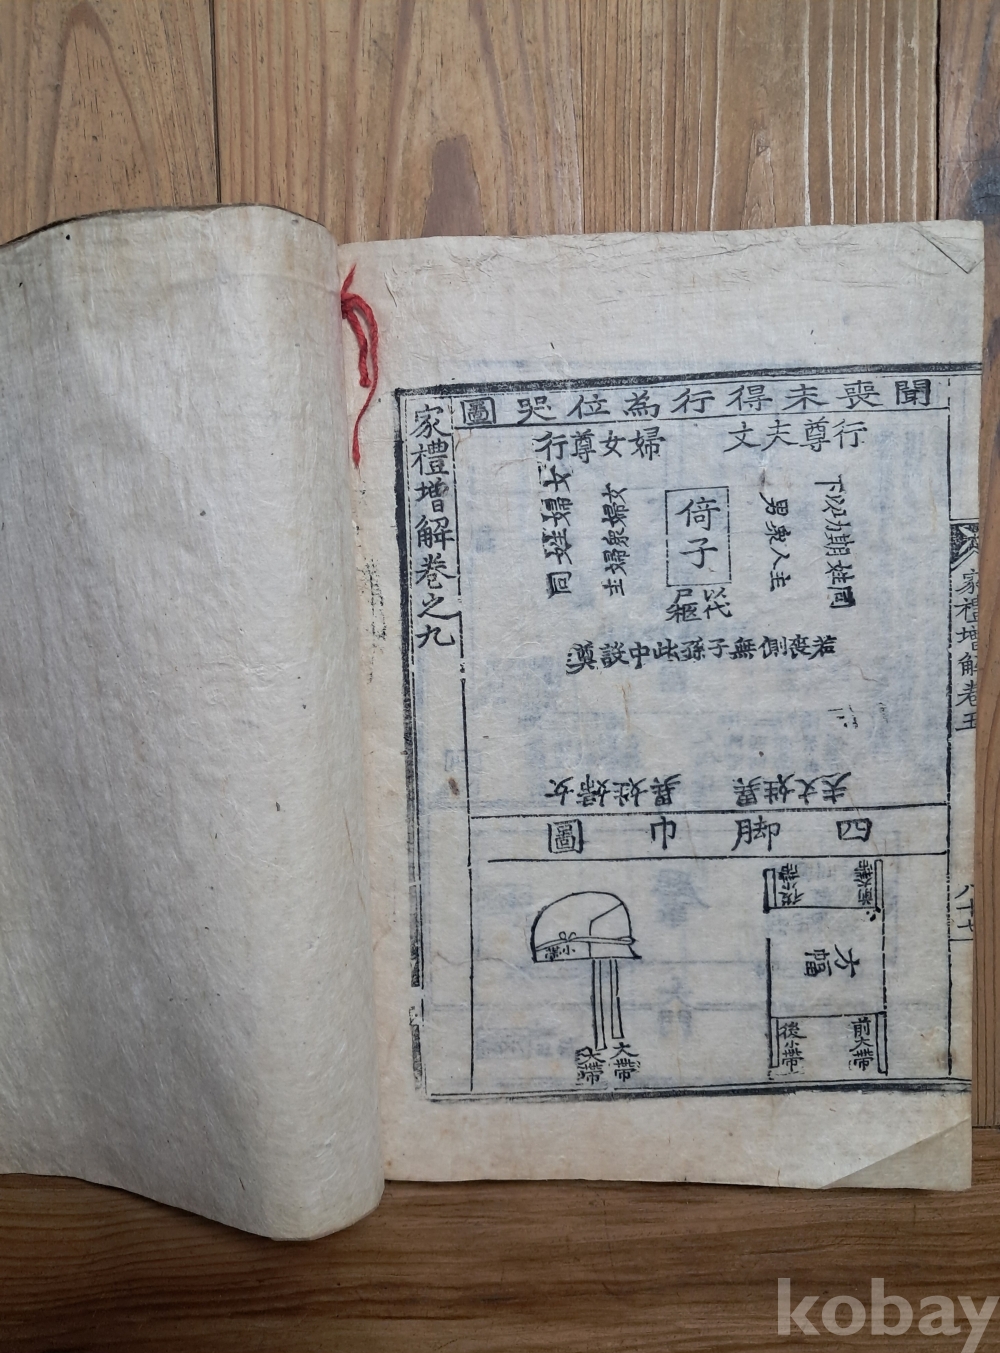 聞喪未得行為位哭圖
行尊夫丈
婦女尊行
同姓期功以下
主人衆男
倚子
以代
尸柩
主婦衆婦女
同姓婦女
若喪側無子孫此中設奠
異姓丈夫
異姓婦女
四脚巾圖
方幅
前大帶
後小帶
小帶
大帶
大帶
家禮增解卷之九
家禮增解卷五
八十七
kobay